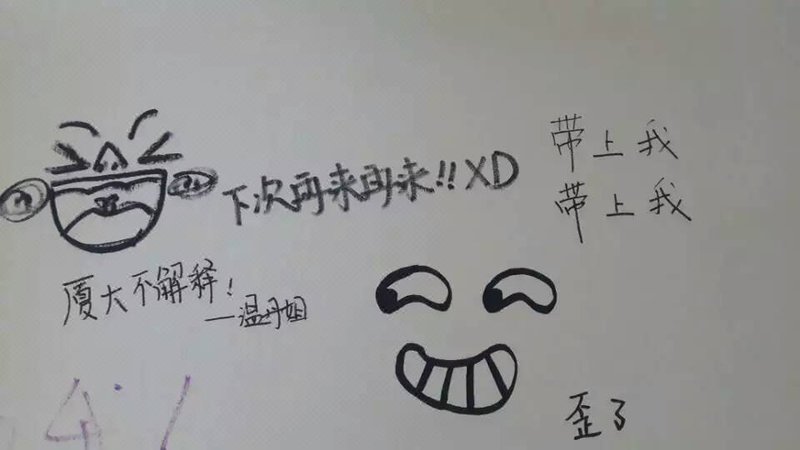 下次再来再来!!XD
带上我
带上我
厦大不解释!
—温丹姐
歪了